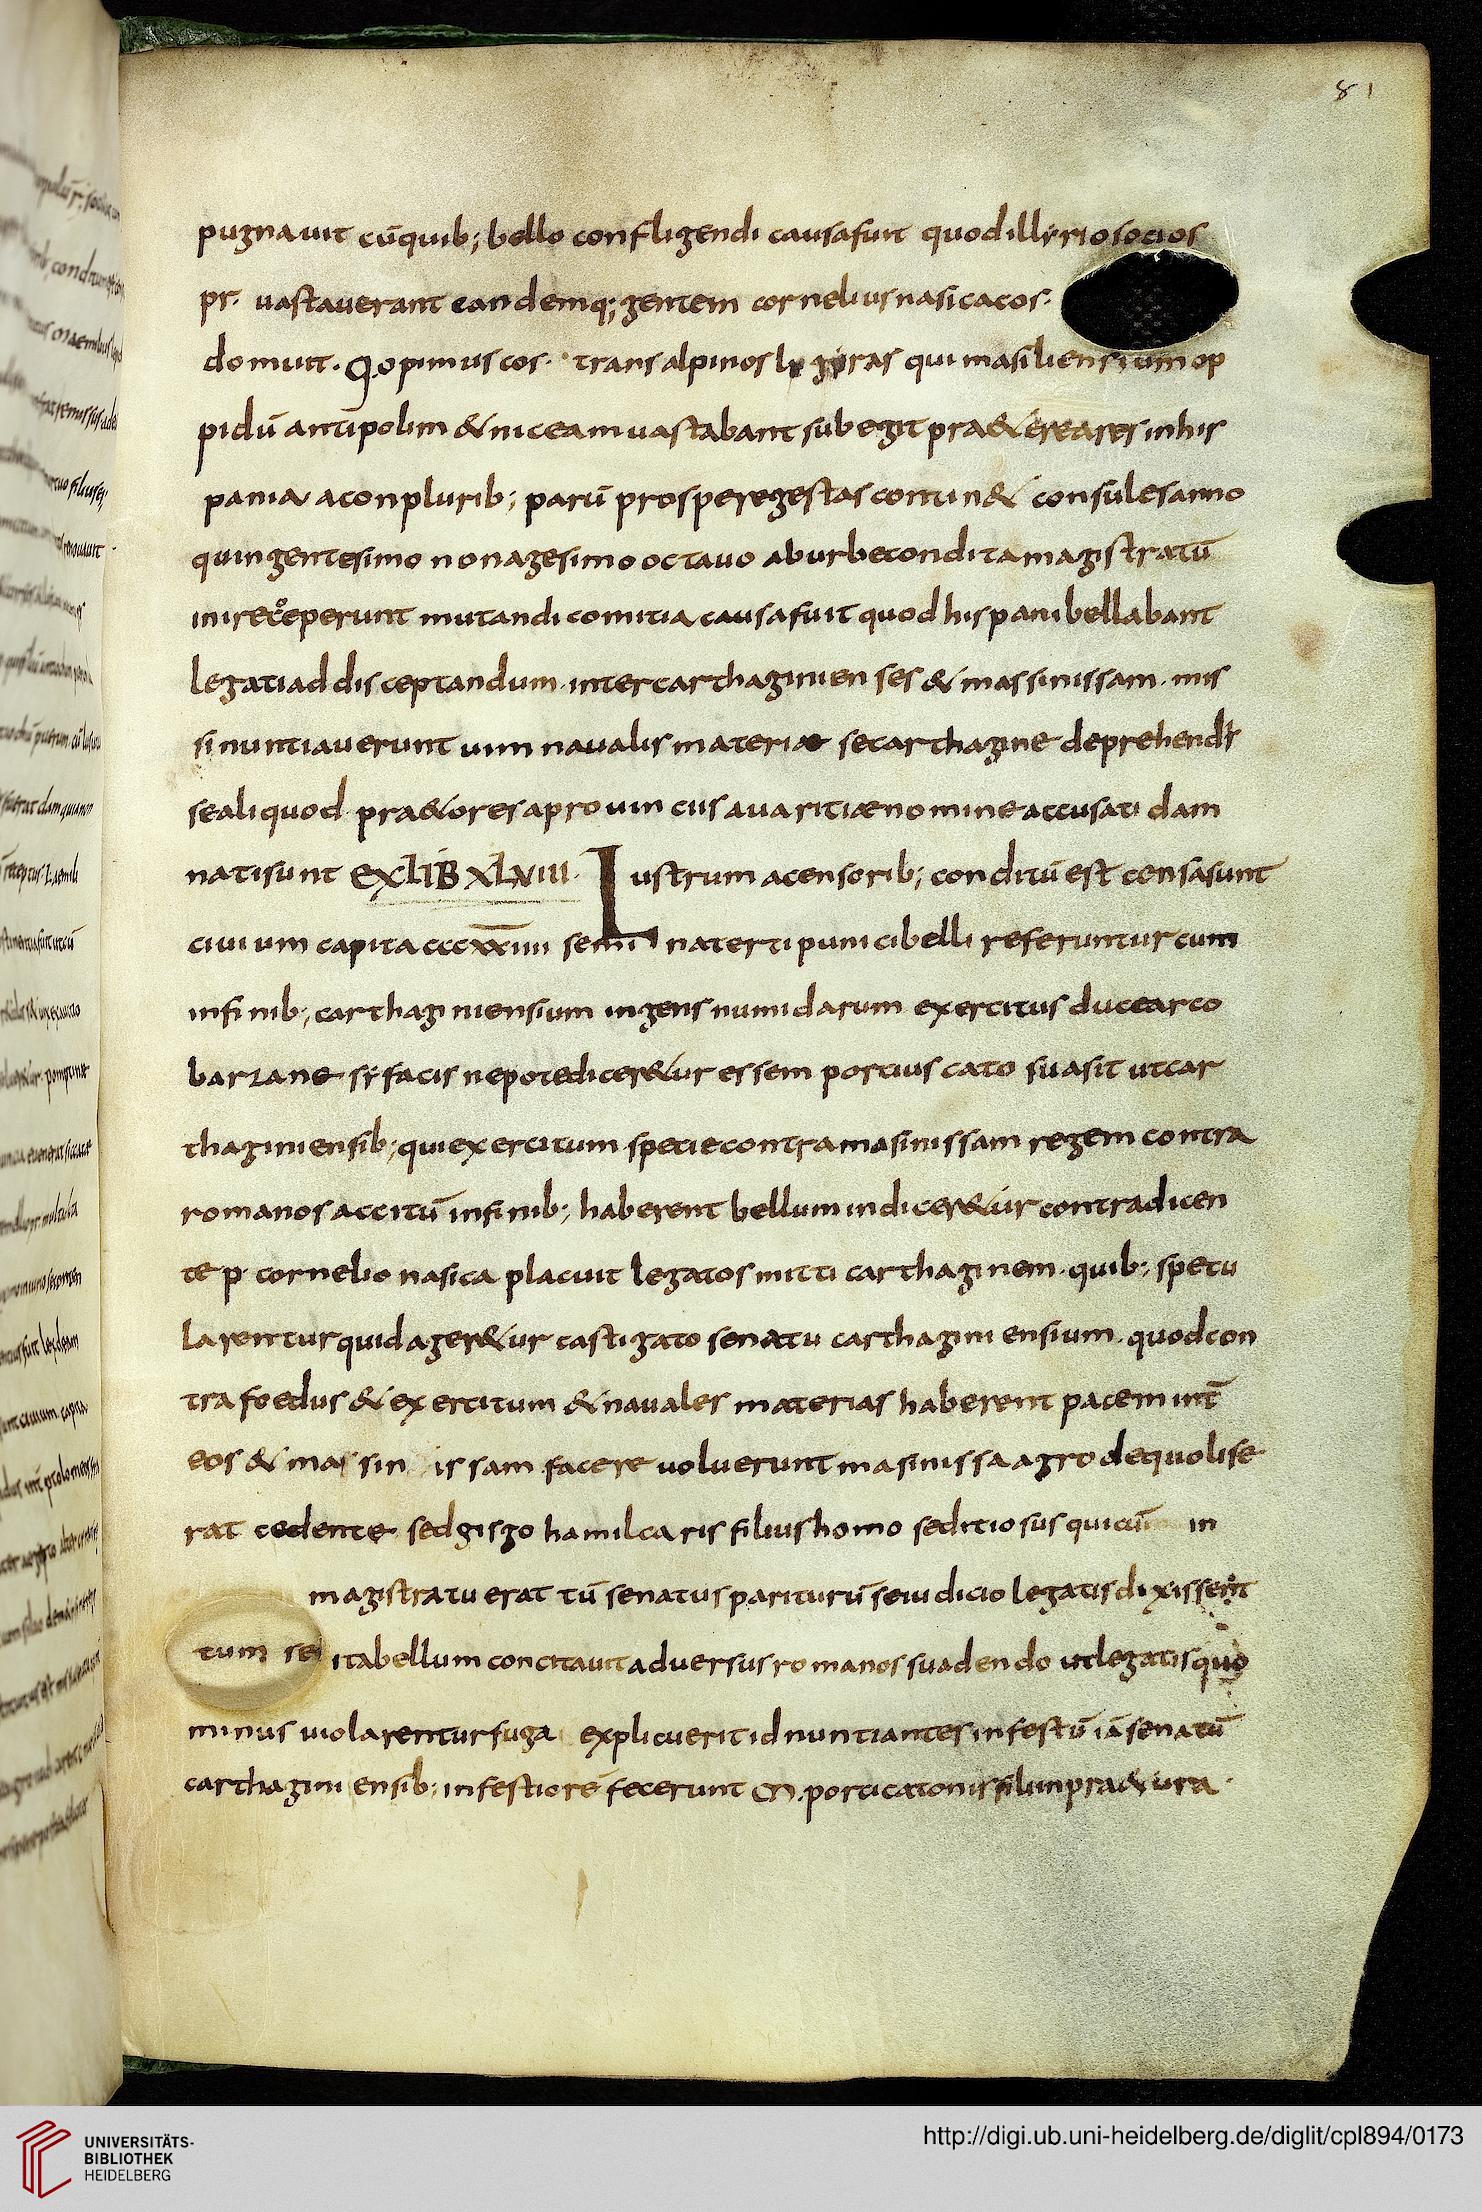 81
pugnauit cū quib; bello confligendi causa fuit quod illyrio socios
pr. uastauerant eandemq; gentem cornelius nasica cos.
domuit. Q. opimus cos. transalpinos ligyras qui masiliensium op
pidū antipolim & niceam uastabant subegit pra&erea res in his
pania a conplurib; parū prospere gestas contin& consules anno
quingentesimo nonagesimo octauo ab urbe condita magistratū
inire coeperunt mutandi comitia causa fuit quod hispani bellabant
legati ad disceptandum inter carthaginienses & massinissam. mis
si nuntiauerunt uim naualis materiae se carthagine deprehendisse
se aliquod pra&ores a prouinciis auaritiae nomine accusati dam
nati sunt EXLIB XLVIII. Lustrum a censorib; conditū est censa sunt
ciuium capita cccxxiiii semina terti punici belli referuntur cum
in finib; carthaginiensium ingens numidarum exercitus duce arco
barzane syfacis nepote dicer&ur essem portius cato suasit ut car
thaginiensib; qui exercitum specie contra masinissam regem contra
romanos accitū in finib; haberent bellum indicer&ur contradicen
te p. cornelio nasica placuit legatos mitti carthaginem. quib; specu
larentur quid ager&ur castigato senatu carthaginiensium. quod con
tra foedus & exercitum & nauales materias haberent pacem int̄
eos & massinissam facere uoluerunt masinissa agro de quo lis e
rat cedente sed gisgo hamilcaris filius homo seditiosus qui cū in
magistratu erat tū senatus pariturū se iudicio legatis dixissent
tum se ita bellum concitauit aduersus romanos suadendo ut legatis quo
minus uiolarentur fuga explicuerit id nuntiantes infestū iā senatū
carthaginiensib; infestiorē fecerunt M. porti catonis filium pra&ura.
UNIVERSITÄTS-
BIBLIOTHEK
HEIDELBERG
http://digi.ub.uni-heidelberg.de/diglit/cpl894/0173